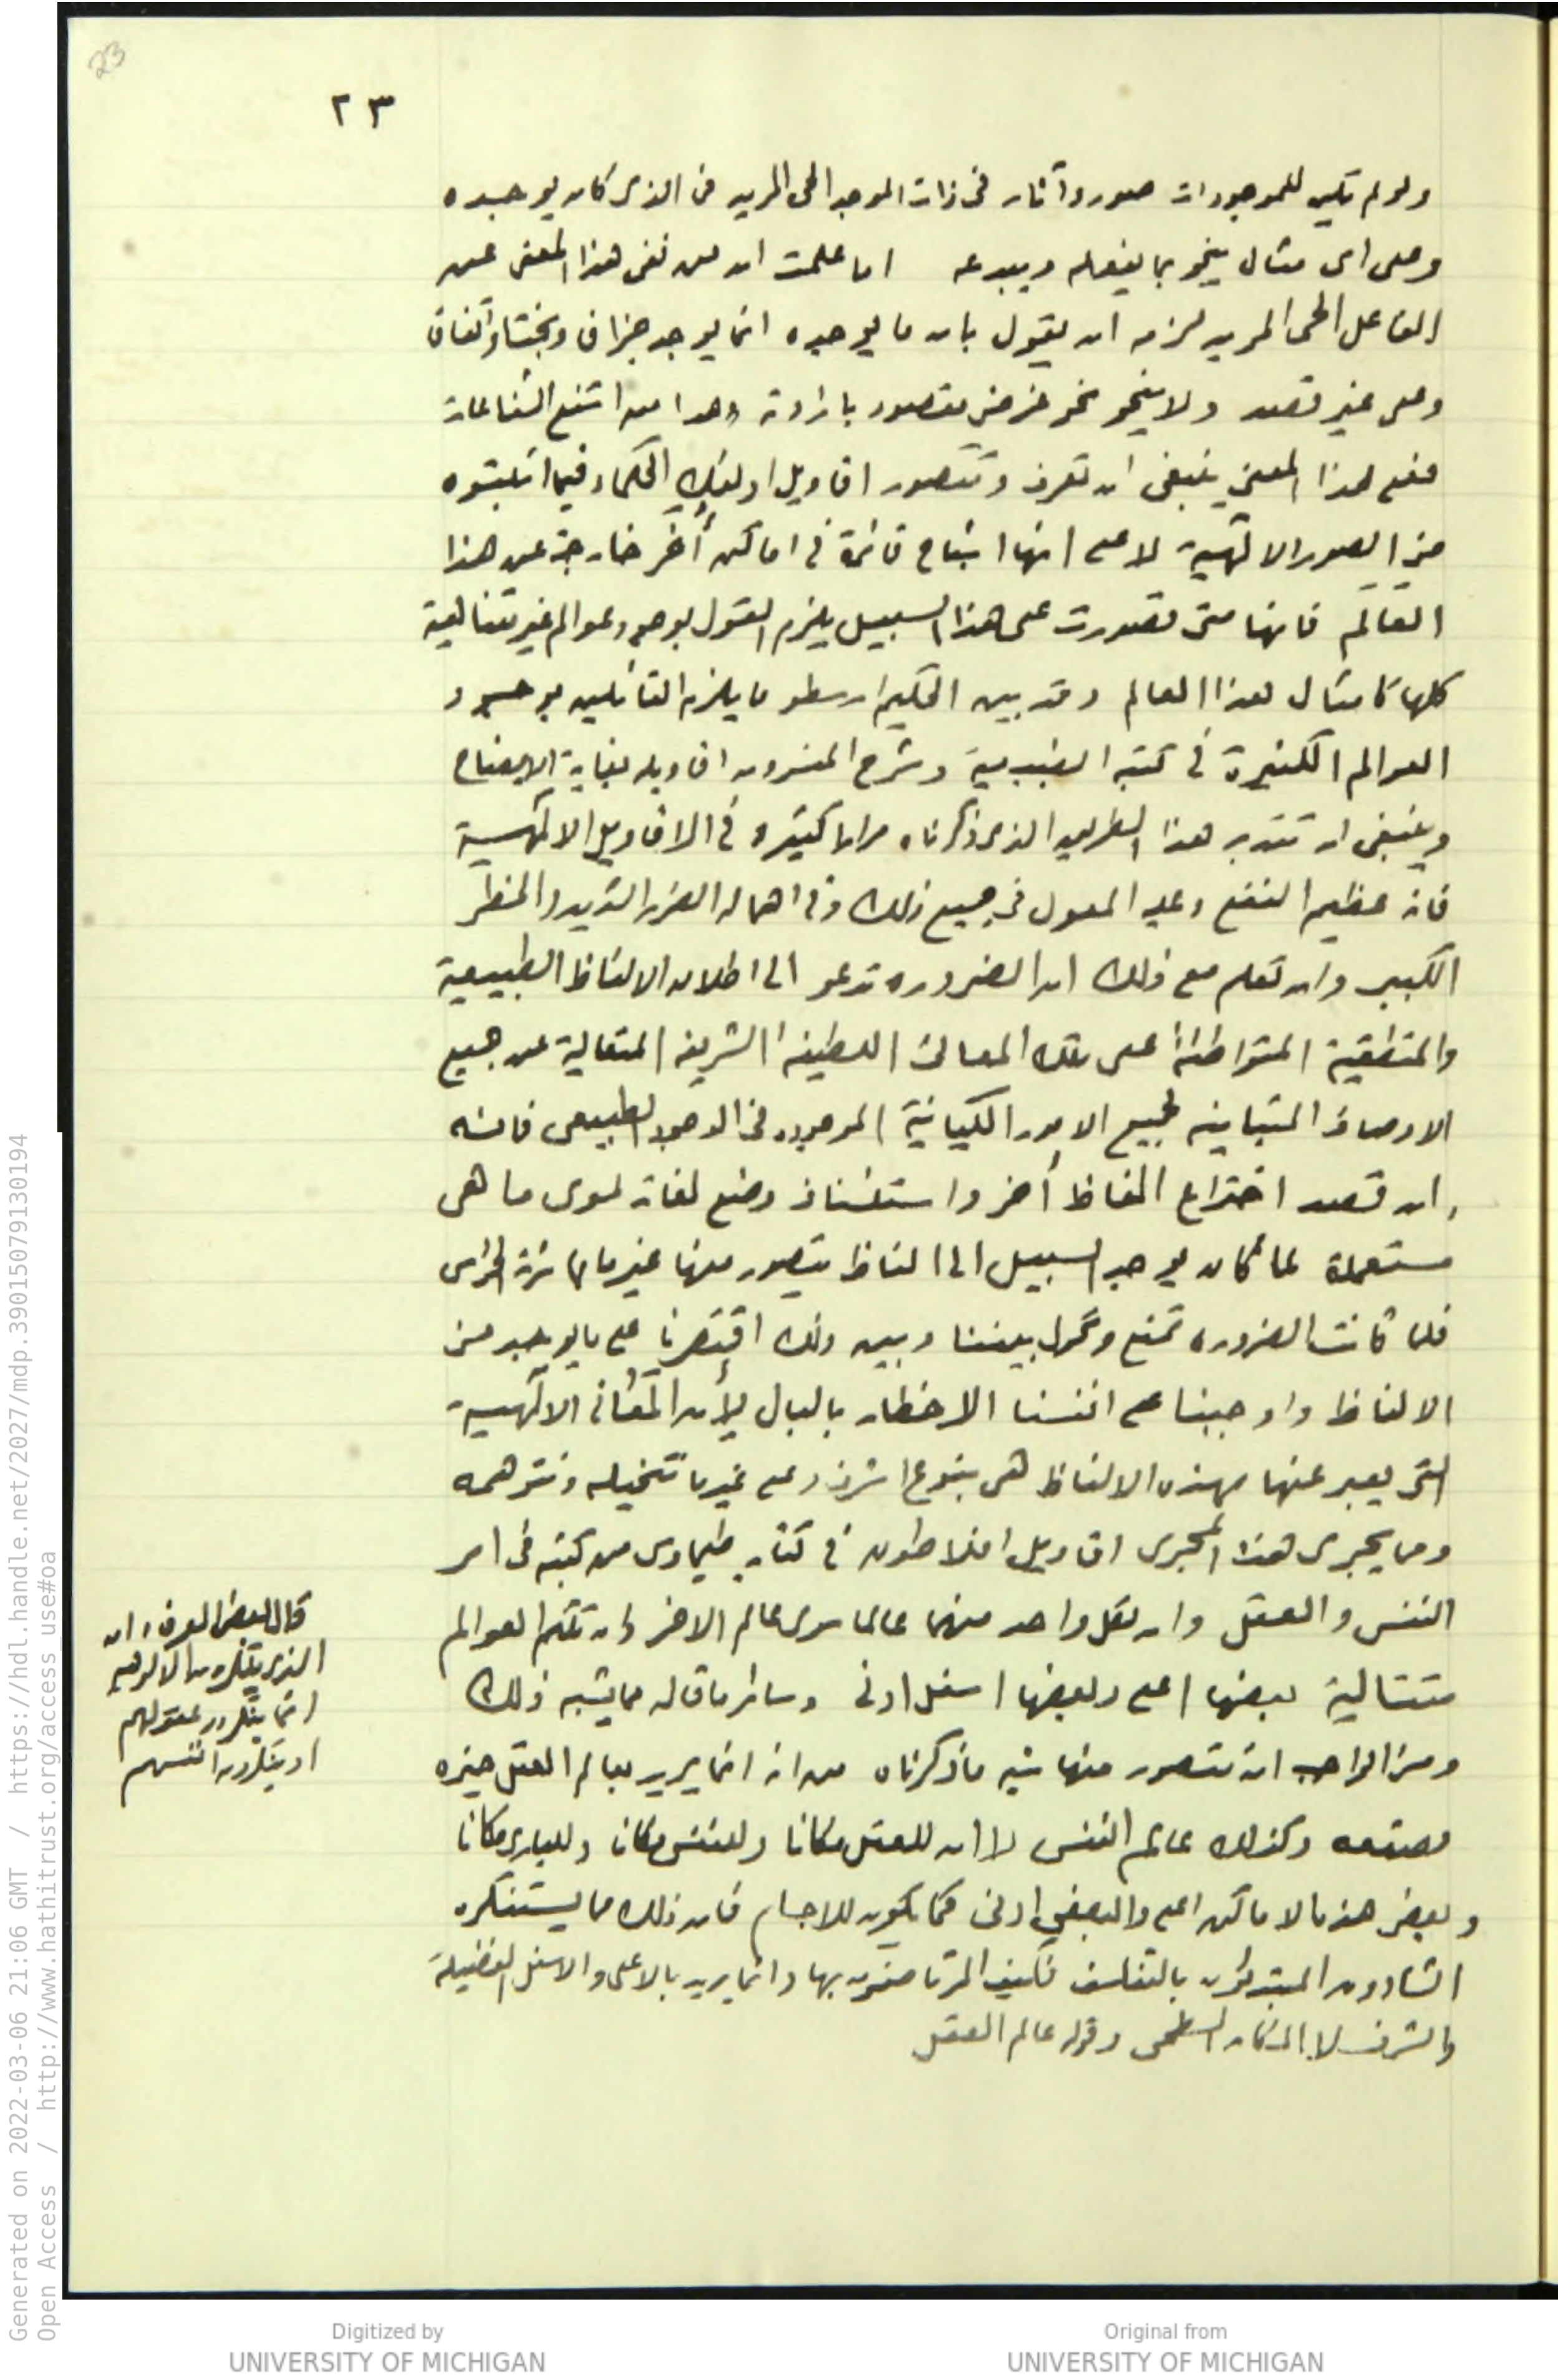 23
٢٣
ولو لم تكن للموجودات صور وآثار فى ذات الموجد الحى المريد فى الذى كان يوجده
وعلى اى مثال ينحو بما يفعله ويبدعه اما علمت ان من نفى هذا المعنى عن
الفاعل الحى المريد لزمه ان يقول بان ما يوجده انما يوجد جزافا وبختا واتفاقا
وعلى غير قصد ولا ينحو نحو غرض مقصود بارادته وهذا من اشنع الشناعات
فعلى هذا المعنى ينبغى ان تعرف وتتصور اقاويل اولئك الحكماء فيما اثبتوه
من الصور الالٓهية لا على انها اشباح قائمة فى اماكن أخر خارجة عن هذا
العالم فانها متى تصورت على هذا السبيل يلزم القول بوجود عوالم غير متناهية
كلها كامثال هذا العالم وقد بين الحكيم ارسطو ما يلزم القائلين بوجود
العوالم الكثيرة فى كتبه الطبيعية وشرح المفسرون اقاويله بغاية الايضاح
وينبغى ان تتدبر هذا الطريق الذى ذكرناه مرارا كثيره فى الاقاويل الالٓهية
فانه عظيم النفع وعليه المعول فى جميع ذلك وفى اهماله الضرر الشديد والخطر
الكبير وان تعلم مع ذلك ان الضروره تدعو الى اطلاق الالفاظ الطبيعية
والمنطقية المتواطئة على تلك المعانى اللطيفه الشريفه المتعالية عن جميع
الاوصاف المتباينه لجميع الامور الكيانية الموجوده فى الوجود الطبيعى فانه
ان قصد اختراع الفاظ أخر واستئناف وضع لغات سوى ما هى
مستعملة لما كان يوجد السبيل الى الفاظ يتصور منها غير ما باشرته الحواس
فلما كانت الضروره تمنع وتحول بيننا وبين ذلك اقتصرنا على ما يوجد من
الالفاظ واوجبنا على انفسنا الاخطار بالبال لأن المعانى الالٓهية
التى يعبر عنها بهذه الالفاظ هى بنوع اشرف وعلى غير ما نتخيله ونتوهمه
ومما يجرى هذا المجرى اقاويل افلاطون فى كتاب طيماوس من كتبه فى امر
النفس والعقل وان لكل واحد منهما عالما سوى عالم الاخر وان تلكم العوالم
متتالية بعضها اعلى وبعضها اسفل ادنى وسائر ما قاله مما يشبه ذلك
ومن الواجب ان نتصور منها شبه ما ذكرناه من انه انما يريد بعالم العقل حيزه
وصقعه وكذلك عالم النفس لا ان للعقل مكانا وللنفس مكانا وللبارى مكانا
وبعض هذه الاماكن اعلى والبعض ادنى كما يكون للاجسام فان ذلك مما يستنكره
الشادون المبتدئون بالتفلسف فكيف المرتاضون بها وانما يريد بالاعلى والاسفل الفضيلة
والشرف لا المكان السطحى وقوله عالم العقل
قال بعض العرفاء ان
الذين ينكرون الالوهيه
انما ينكرون عقولهم
او ينكرون انفسهم
Generated on 2022-03-06 21:06 GMT / https://hdl.handle.net/2027/mdp.39015079130194
Open Access / http://www.hathitrust.org/access_use#oa
Digitized by
UNIVERSITY OF MICHIGAN
Original from
UNIVERSITY OF MICHIGAN